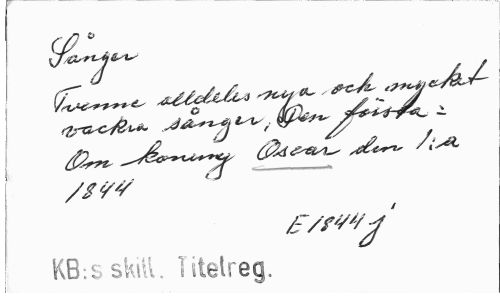 Sånger
Tvenne alldeles nya och mycket
vackra sånger, Den första =
Om konung Oscar den 1:a
1844
E 1844 j
KB:s skill. Titelreg.